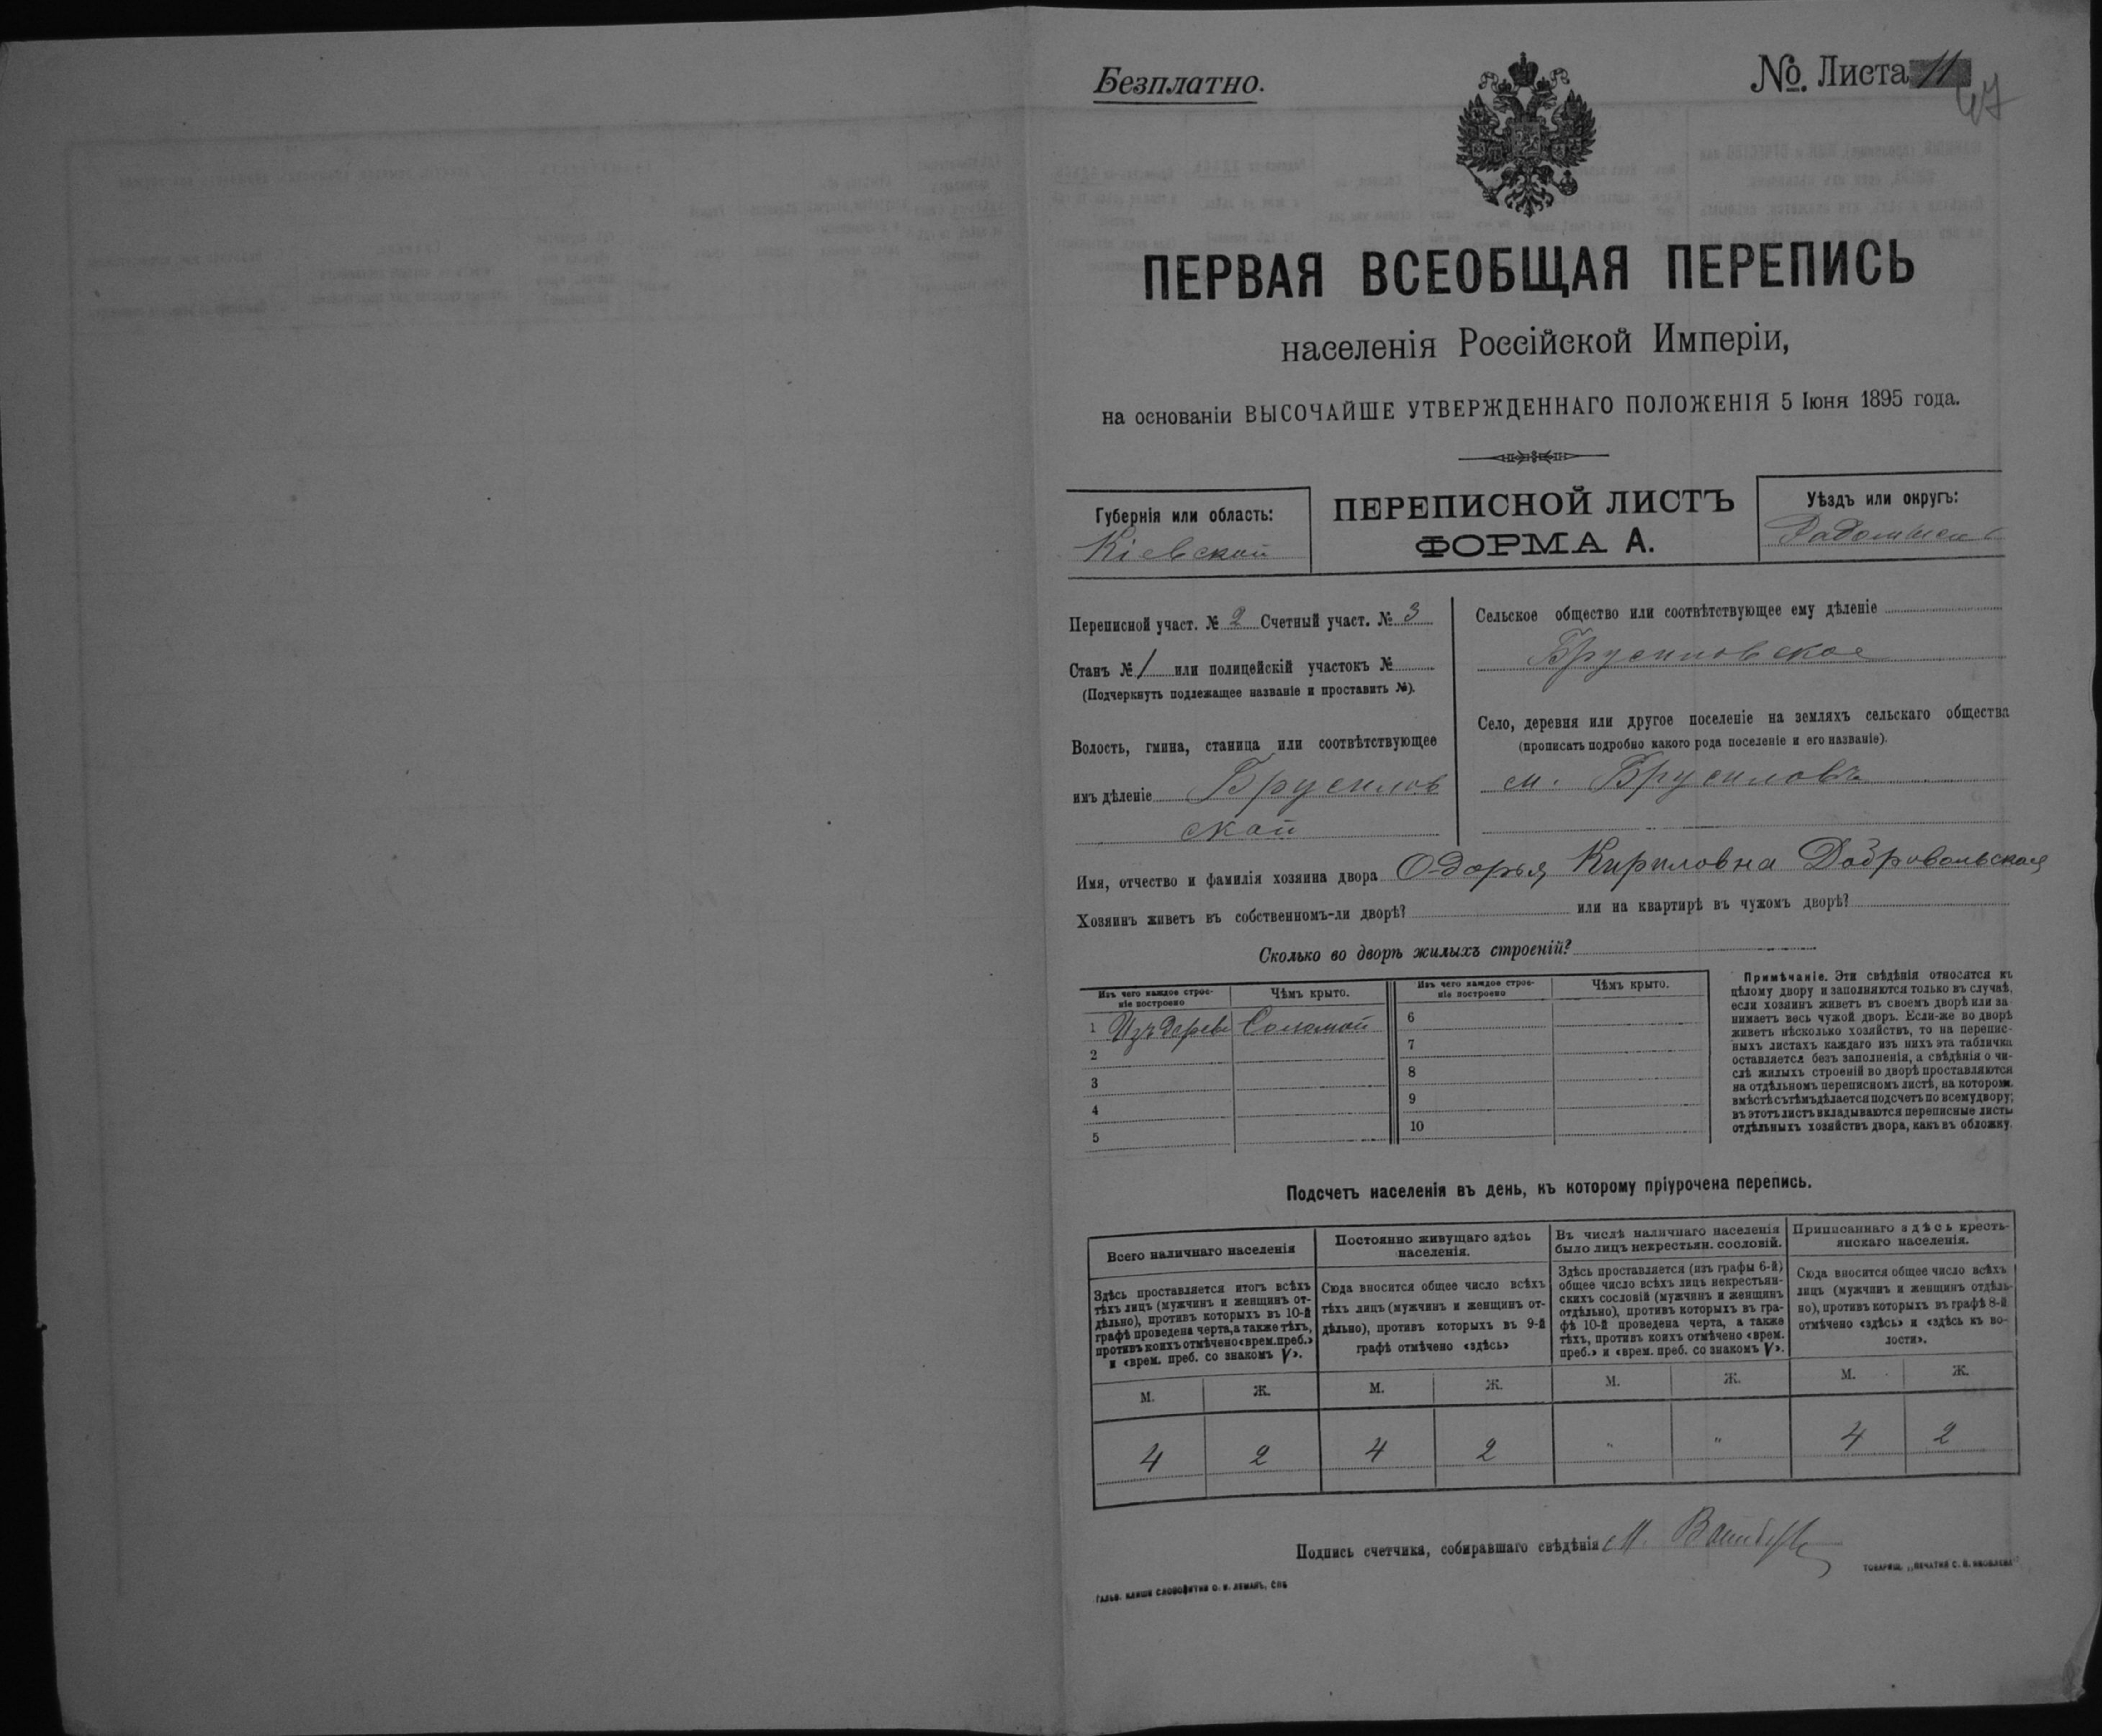 Безплатно.
№. Листа 11
47
ПЕРВАЯ ВСЕОБЩАЯ ПЕРЕПИСЬ
населенія Россійской Имперіи,
на основаніи ВЫСОЧАЙШЕ УТВЕРЖДЕННАГО ПОЛОЖЕНІЯ 5 Іюня 1895 года.
Губернія или область:
Кіевской
ПЕРЕПИСНОЙ ЛИСТЪ
ФОРМА А.
Уѣздъ или округъ:
Переписной участ. № 2 Счетный участ. № 3
Станъ № 1 или полицейскій участокъ №
(Подчеркнуть подлежащее названіе и проставить №).
Волость, гмина, станица или соотвѣтствующее
имъ дѣленіе Брусилов
ской
Сельское общество или соотвѣтствующее ему дѣленіе
Брусиловское
Село, деревня или другое поселеніе на земляхъ сельскаго общества
(прописать подробно какого рода поселеніе и его названіе).
м. Брусиловъ
Имя, отчество и фамилія хозяина двора Одарья Кириловна Добровольская
Хозяинъ живетъ въ собственномъ-ли дворѣ? или на квартирѣ въ чужомъ дворѣ?
Сколько во дворѣ жилыхъ строеній?
Изъ чего каждое строе-
ніе построено
Чѣмъ крыто.
Изъ чего каждое строе-
ніе построено
Чѣмъ крыто.
1 Изъ дерева Соломой
2
3
4
5
6
7
8
9
10
Примѣчаніе. Эти свѣдѣнія относятся къ
цѣлому двору и заполняются только въ случаѣ,
если хозяинъ живетъ въ своемъ дворѣ или за-
нимаетъ весь чужой дворъ. Если-же во дворѣ
живетъ нѣсколько хозяйствъ, то на перепис-
ныхъ листахъ каждаго изъ нихъ эта табличка
оставляется безъ заполненія, а свѣдѣнія о чи-
слѣ жилыхъ строеній во дворѣ проставляются
на отдѣльномъ переписномъ листѣ, на которомъ
вмѣстѣ съ тѣмъ дѣлается подсчетъ по всему двору;
въ этотъ листъ вкладываются переписные листы
отдѣльныхъ хозяйствъ двора, какъ въ обложку.
Подсчетъ населенія въ день, къ которому пріурочена перепись.
Всего наличнаго населенія
Здѣсь проставляется итогъ всѣхъ
тѣхъ лицъ (мужчинъ и женщинъ от-
дѣльно), противъ которыхъ въ 10-й
графѣ проведена черта, а также тѣхъ,
противъ коихъ отмѣчено «врем. преб.»
и «врем. преб. со знакомъ V».
Постоянно живущаго здѣсь
населенія.
Сюда вносится общее число всѣхъ
тѣхъ лицъ (мужчинъ и женщинъ от-
дѣльно), противъ которыхъ въ 9-й
графѣ отмѣчено «здѣсь»
Въ числѣ наличнаго населенія
было лицъ некрестьян. сословій.
Здѣсь проставляется (изъ графы 6-й)
общее число всѣхъ лицъ некрестьян-
скихъ сословій (мужчинъ и женщинъ
отдѣльно), противъ которыхъ въ гра-
фѣ 10-й проведена черта, а также
тѣхъ, противъ коихъ отмѣчено «врем.
преб.» и «врем. преб. со знакомъ V».
Приписаннаго здѣсь кресть-
янскаго населенія.
Сюда вносится общее число всѣхъ
лицъ (мужчинъ и женщинъ отдѣль-
но), противъ которыхъ въ графѣ 8-й
отмѣчено «здѣсь» и «здѣсь къ во-
лости».
М. Ж. М. Ж. М. Ж. М. Ж.
4 2 4 2 " " 4 2
Подпись счетчика, собиравшаго свѣдѣнія М.
ГАЛЬВ. КЛИШЕ СЛОВОЛИТНИ О. И. ЛЕМАНЪ, СПБ
ТОВАРИЩ. „ПЕЧАТНЯ С. П. ЯКОВЛЕВА"